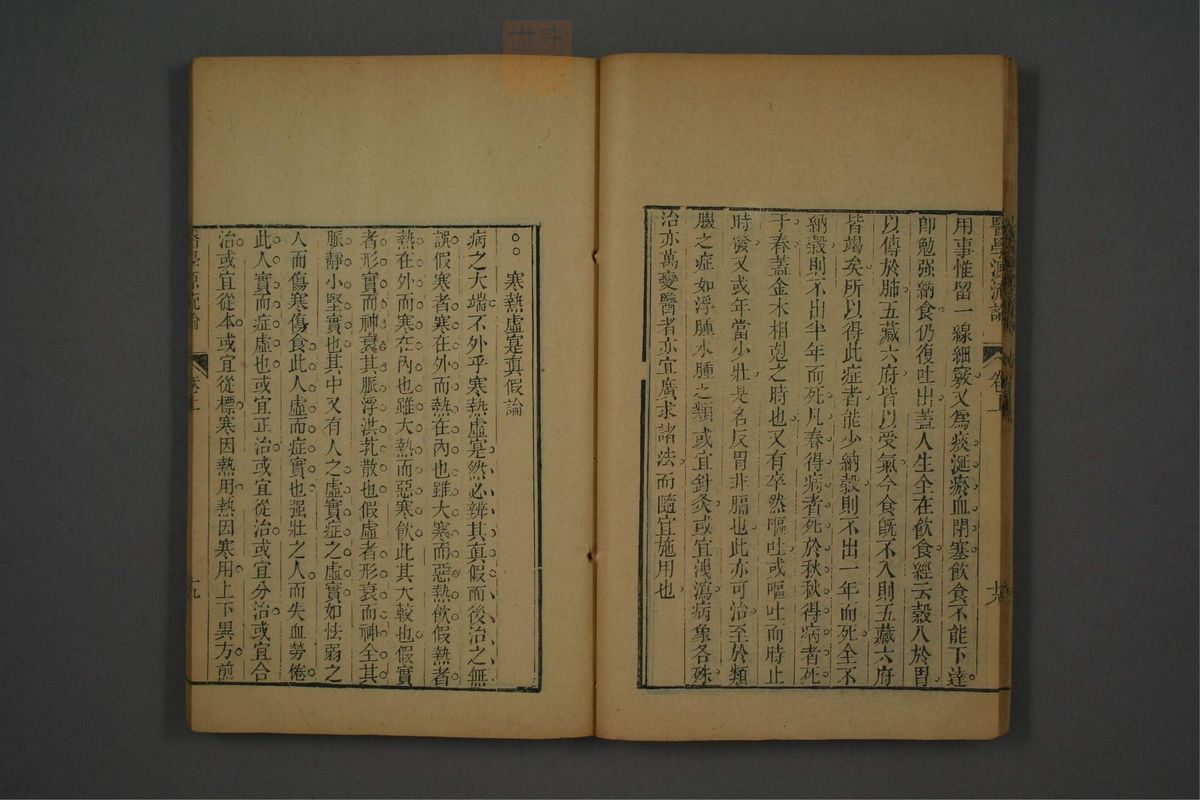 醫學源流論 卷上 十八
用事惟留一線細竅又為痰涎瘀血閉塞飲食不能下達
即勉强納食仍復吐出蓋人生全在飲食經云穀入於胃
以傳於肺五藏六府皆以受氣今食既不入則五藏六府
皆竭矣所以得此症者能少納穀則不出一年而死全不
納穀則不出半年而死凡春得病者死於秋秋得病者死
于春蓋金木相剋之時也又有卒然嘔吐或嘔吐而時止
時發又或年當少壯是名反胃非膈也此亦可治至於類
臌之症如浮腫水腫之類或宜針灸或宜洩瀉病象各殊
治亦萬變醫者亦宜廣求諸法而隨宜施用也
寒熱虛寔真假論
病之大端不外乎寒熱虛寔然必辨其真假而後治之無
誤假寒者寒在外而熱在內也雖大寒而惡熱飲假熱者
熱在外而寒在內也雖大熱而惡寒飲此其大較也假實
者形實而神衰其脈浮洪芤散也假虛者形衰而神全其
脈靜小堅實也其中又有人之虛實症之虛實如怯弱之
人而傷寒傷食此人虛而症實也强壯之人而失血勞倦
此人實而症虛也或宜正治或宜從治或宜分治或宜合
治或宜從本或宜從標寒因熱用熱因寒用上下異方前
醫學源流論 卷上 十九